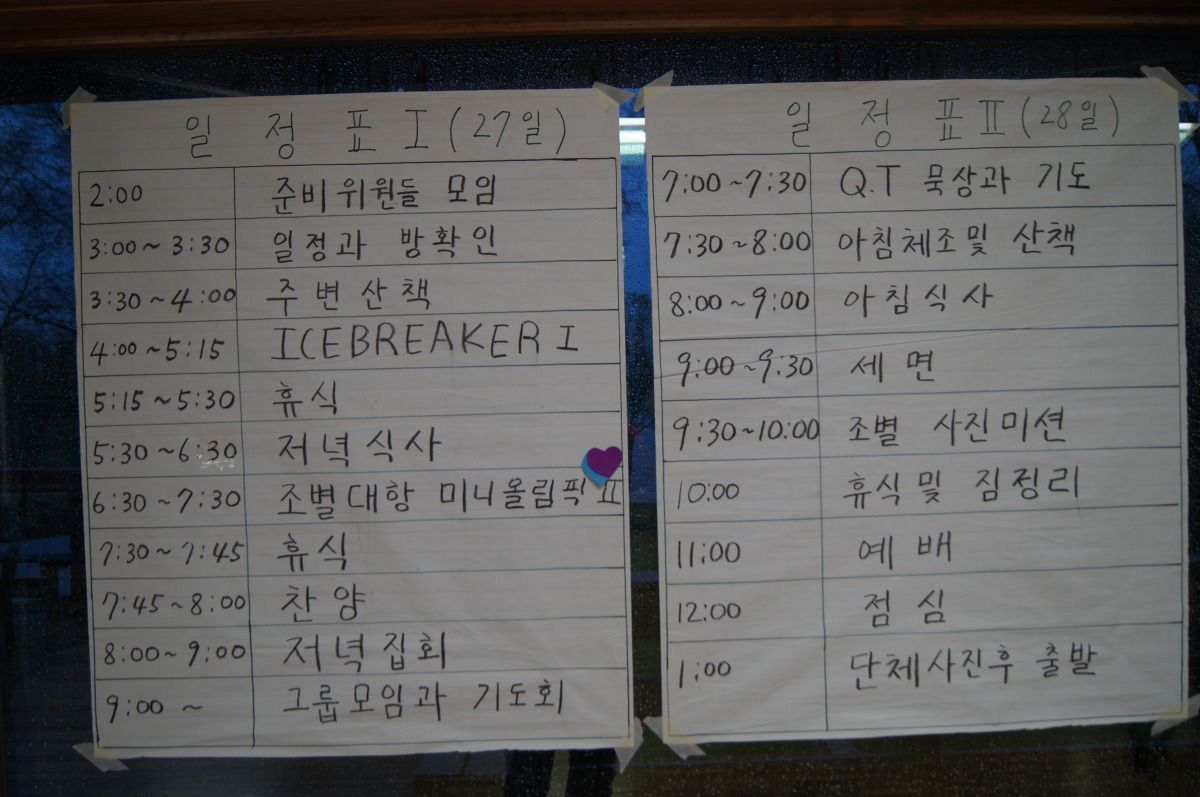 일 정 표 I (27일)
2:00 준비위원들 모임
3:00 ~ 3:30 일정과 방확인
3:30 ~ 4:00 주변산책
4:00 ~ 5:15 ICEBREAKER I
5:15 ~ 5:30 휴식
5:30 ~ 6:30 저녁식사
6:30 ~ 7:30 조별대항 미니올림픽 II
7:30 ~ 7:45 휴식
7:45 ~ 8:00 찬양
8:00 ~ 9:00 저녁집회
9:00 ~ 그룹모임과 기도회
일 정 표 II (28일)
7:00 ~ 7:30 Q.T 묵상과 기도
7:30 ~ 8:00 아침체조및 산책
8:00 ~ 9:00 아침식사
9:00 ~ 9:30 세면
9:30 ~ 10:00 조별 사진미션
10:00 휴식및 짐정리
11:00 예배
12:00 점심
1:00 단체사진후 출발